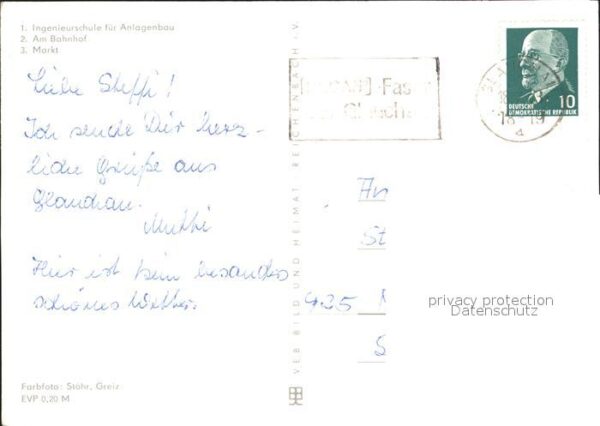 1. Ingenieurschule für Anlagenbau
2. Am Bahnhof
3. Markt
Liebe Steffi!
Ich sende Dir herz-
liche Grüße aus
Glauchau.
Mutti
Hier ist kein besonders
schönes Wetter.
Farbfoto: Stöhr, Greiz
EVP 0,20 M
VEB BILD UND HEIMAT REICHENBACH i. V.
DEUTSCHE
DEMOKRATISCHE REPUBLIK
10
An
St
935
S
privacy protection
Datenschutz